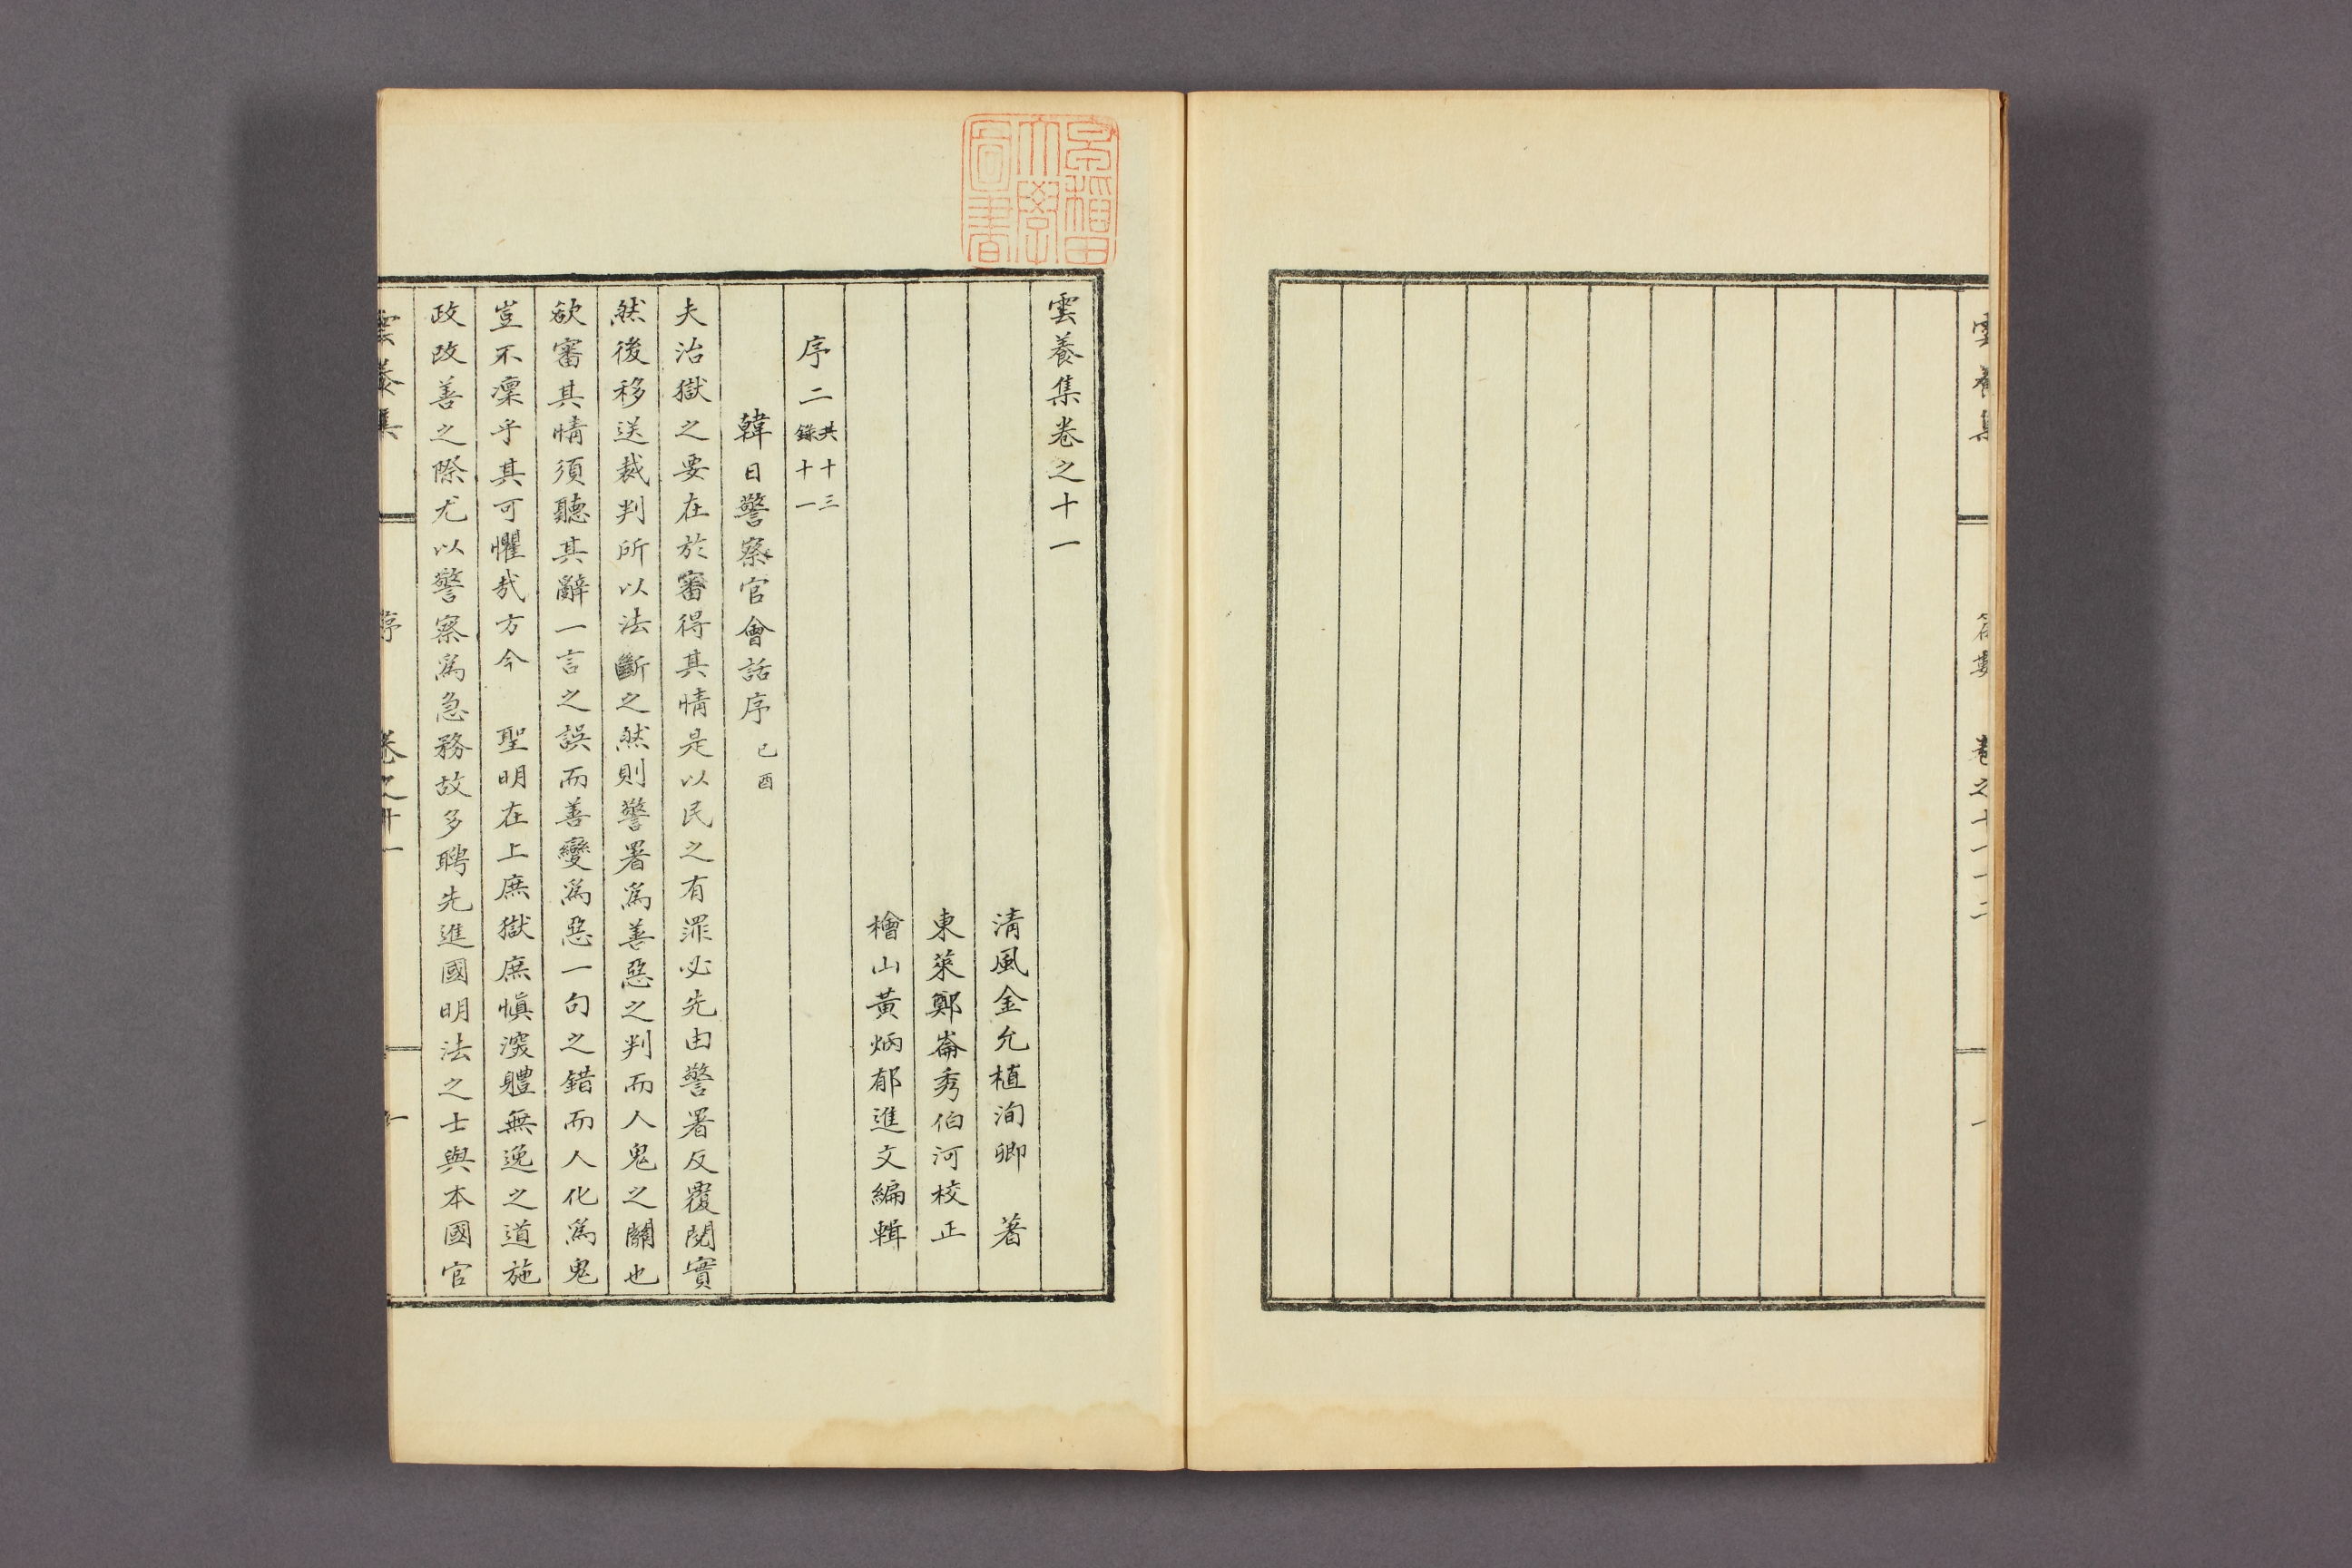 雲養集
篇數
卷之十一十二
一
早稻田
大學
圖書
雲養集卷之十一
清風金允植洵卿 著
東萊鄭崙秀伯河校正
檜山黃炳郁進文編輯
序二 共十三 錄十一
韓日警察官會話序 己酉
夫治獄之要在於審得其情是以民之有罪必先由警署反覆閱實
然後移送裁判所以法斷之然則警署爲善惡之判而人鬼之關也
欲審其情須聽其辭一言之誤而善變爲惡一句之錯而人化爲鬼
豈不凜乎其可懼哉方今 聖明在上庶獄庶愼深體無逸之道施
政改善之際尤以警察爲急務故多聘先進國明法之士與本國官
雲養集
序
卷之十一
一